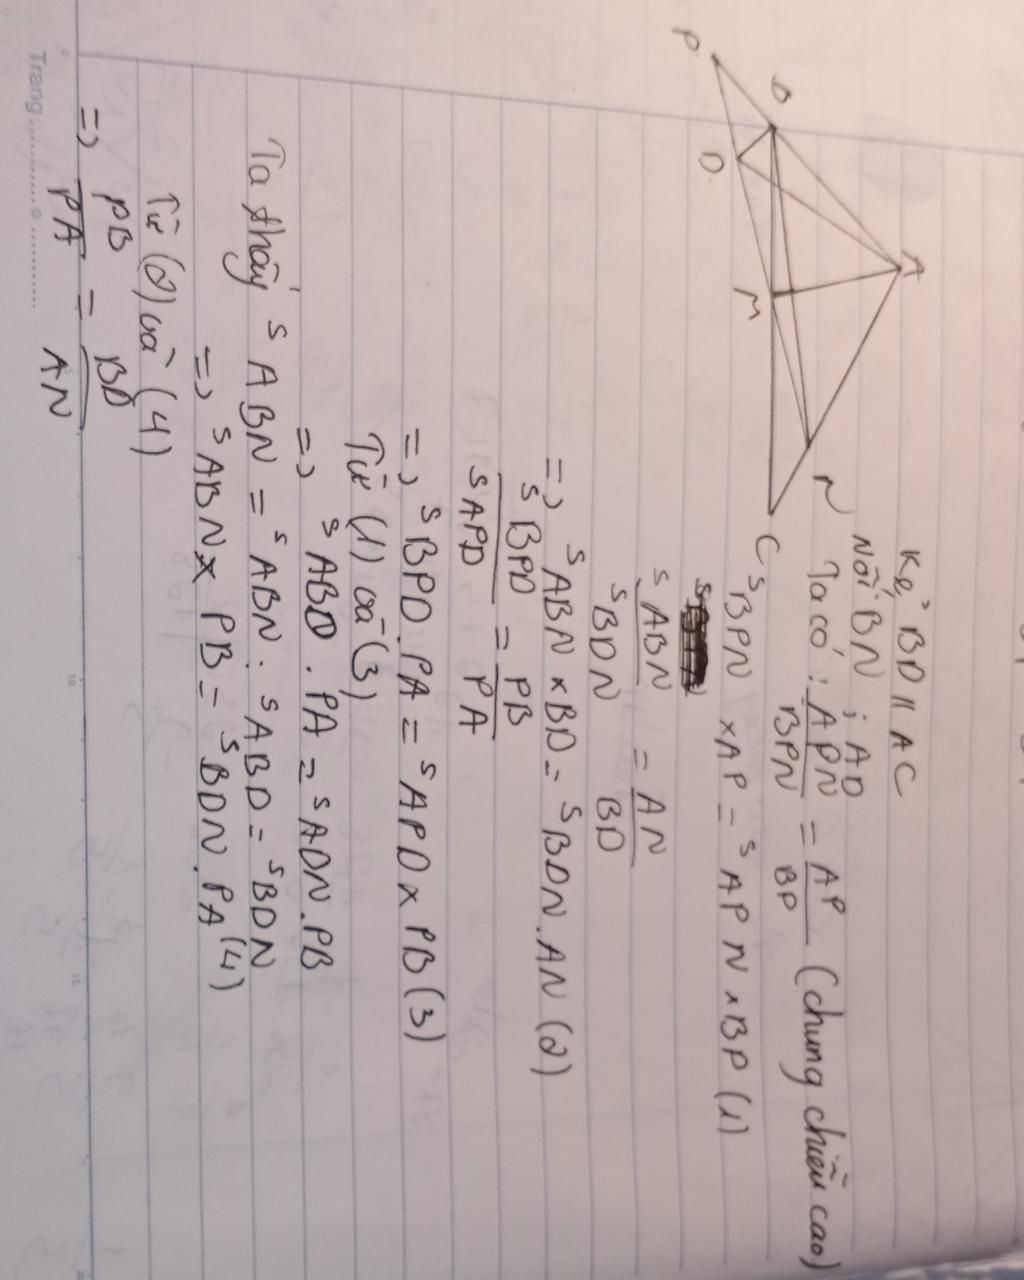 P
B
D
A
M
N
C
Kẻ BD // AC
Nối BN ; AD
Ta có : APN / BPN = AP / BP (chung chiều cao)
SBPN × AP = SAPN × BP (1)
SABN / SBDN = AN / BD
=> SABN × BD = SBDN . AN (2)
SBPD / SAPD = PB / PA
=> SBPD . PA = SAPD × PB (3)
Từ (1) và (3)
=> SABD . PA = SADN . PB
Ta thấy SABN = SABN . SABD = SBDN
=> SABN × PB = SBDN . PA (4)
Từ (2) và (4)
=> PB / PA = BD / AN
Trang